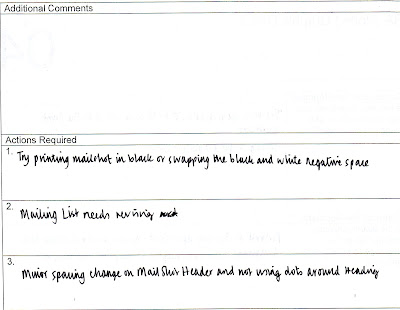 Additional Comments
Actions Required
1. Try printing mailshot in black or swapping the black and white negative space
2. Mailing List needs revising
3. Minor spacing change on Mail Shot Header and not using dots around Heading